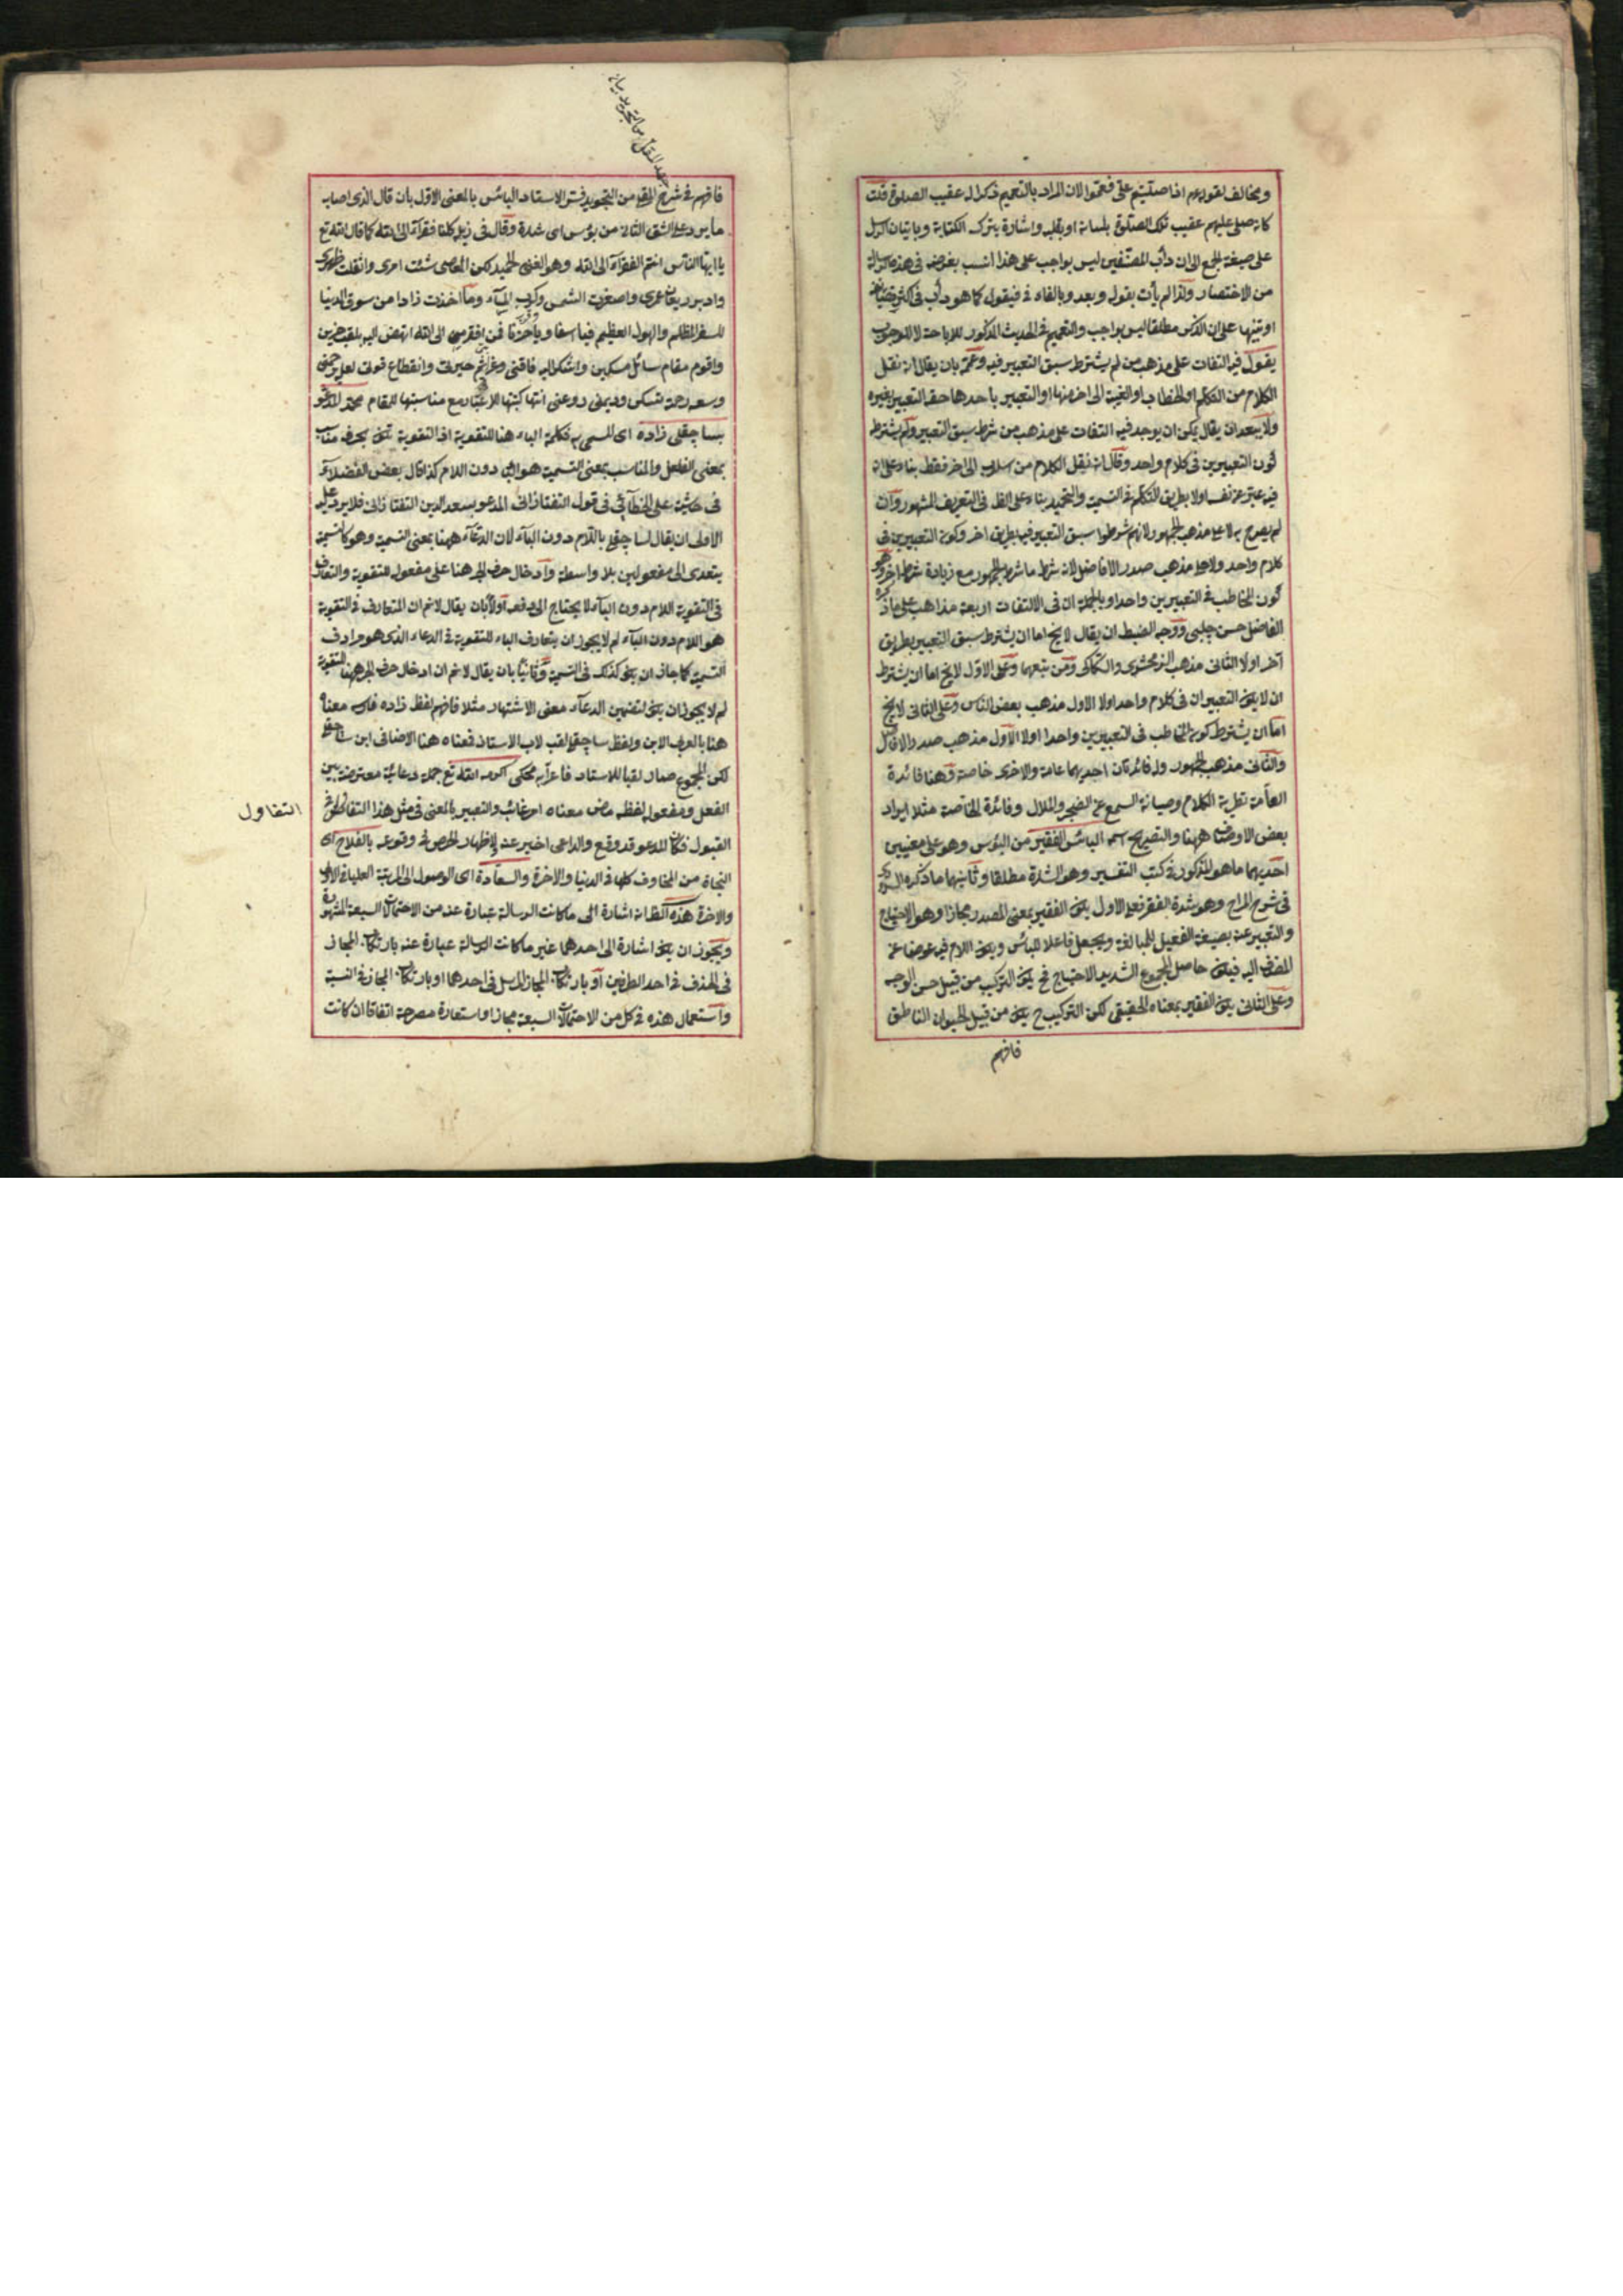 ومخالف لقوله عم اذا صليتم على فعمموا لان المراد بالتعميم ذكر الال عقيب الصلوة قلت
كانه صلى عليهم عقيب تلك الصلوة بلسانه او بقلبه واشارة بترك الكتابة وباتيان الرسل
على صيغة الجمع الى ان دأب المصنفين ليس بواجب على هذا انسب بغرضه في هذه الرسالة
من الاختصار ولذا لم يأت بقول وبعد وبالفاء في فيقول كما هو دأب في اكثر
او تنبيها على ان الذكر مطلقا ليس بواجب والتعميم في الحديث المذكور للاباحة لا للوجوب
يقول فيه التفات على مذهب من لم يشترط سبق التعبير فيه وعممه بان يقال انه نقل
الكلام من التكلم او الخطاب او الغيبة الى اخر منها او التعبير باحدها حقه التعبير بغيره
ولا يبعد ان يقال يمكن ان يوجد فيه التفات على مذهب من شرط سبق التعبير ولم يشترط
كون التعبيرين في كلام واحد وقال انه نقل الكلام من اسلوب الى اخر فقط بناء على ان
فيه عبر عن نفسه اولا بطريق التكلم في التسمية والتحميد بناء على الظ في التعريف المشهور وان
لم يصرح به لا على مذهب الجمهور لانهم شرطوا سبق التعبير فيه بطريق اخر وكون التعبيرين في
كلام واحد ولا على مذهب صدر الافاضل لانه شرط ما شرط الجمهور مع زيادة شرط اخر وهو
كون المخاطب في التعبيرين واحدا وبالجملة ان في الالتفات اربعة مذاهب على ما ذكره
الفاضل حسن چلبي ووجه الضبط ان يقال لا يخ اما ان يشترط سبق التعبير بطريق
آخر اولا الثاني مذهب الزمخشرى والسكاكى ومن تبعهما وعلى الاول لا يخ اما ان يشترط
ان لا يكون التعبيران في كلام واحد اولا الاول مذهب بعض الناس وعلى الثاني لا يخ
اما ان يشترط كون المخاطب في التعبيرين واحدا اولا الاول مذهب صدر الافاضل
والثاني مذهب الجمهور وله فائدتان احديهما عامة والاخرى خاصة وهنا فائدة
العامة تطرية الكلام وصيانة السمع عن الضجر والملال وفائدة الخاصة مثلا ايراد
بعض الاوصاف ههنا والتصريح اسمه البائس الفقير من البؤس وهو على معنيين
احديهما ما هو المذكور في كتب التفسير وهو الشدة مطلقا وثانيهما ما ذكره
في شرح المراح وهو شدة الفقر فعلى الاول يكون الفقير بمعنى المصدر مجازا وهو الاحتياج
والتعبير عنه بصيغة الفعيل للمبالغة ويجعل فاعلا للبائس ويكون اللام فيه عوضا عن
المضاف اليه فيكون حاصل المجموع الشديد الاحتياج فح يكون التركيب من قبيل حسن الوجه
وعلى الثاني يكون الفقير بمعناه الحقيقي لكن التركيب ح يكون من قبيل الحيوان الناطق
فافهم
فافهم في شرح المقل من التجويد فسر الاستاد البائس بالمعنى الاول بان قال الذى اصابه
ما يرد على الشق الثاني من بؤس اى شدة وقال في ذيله كلنا فقرآء الى الله كما قال الله تع
يا ايها الناس انتم الفقرآء الى الله وهو الغني الحميد لكن المعاصى شتت امرى واثقلت ظهرى
وادبر ريعان عمرى واصفرت الشمس وكرب المسآء وما اخذت زادا من سوق الدنيا
للسفر المظلم والهول العظيم فيا اسفا ويا حزنا فمن افقر مني الى الله انهض اليه بقلب حزين
واقوم مقام سائل مسكين واشكو اليه فاقتى وعن حيرتى وانقطاع قوتى لعل
وسعه رحمة تسكن وديمنى روعنى انتهى كتبتها للاعتبار مع مناسبتها للمقام محمد المدعو
بساچقلي زاده اى المسمى به فكلمة الباء هنا للتقوية اذ التقوية تكون بحرف مناسب
بمعنى الفعل والمناسب بمعنى التسمية هو البآء دون اللام كذا قال بعض الفضلاء
في حاشيته على الخطائي في قول التفتازانى المدعو بسعد الدين التفتازانى فلا يرد عليه
الاولى ان يقال لساچقلي باللام دون البآء لان الدعآء ههنا بمعنى التسمية وهو كالتسمية
يتعدى الى مفعولين بلا واسطة وادخال حرف الجر هنا على مفعوله للتقوية والمتعارف
في التقوية اللام دون البآء لا يحتاج الى دفعه اولا بان يقال لا نم ان المتعارف في التقوية
هو اللام دون البآء لم لا يجوز ان يتعارف الباء للتقوية في الدعاء الذى هو مرادف
التسمية كما جاز ان يكون كذلك في التسمية وثانيا بان يقال لا نم ان ادخال حرف الجر ههنا للتقوية
لم لا يجوز ان يكون لتضمين الدعآء معنى الاشتهار مثلا فافهم لفظ زاده فارسى معناه
هنا بالعربى الابن ولفظ ساچقلي لقب لاب الاستاد فمعناه هنا الاضافى ابن ساچقلي
لكن المجموع صار لقبا للاستاد فاعرابه محكى اكرمه الله تع جملة دعائية معترضة بين
الفعل ومفعوله لفظه ماض معناه امر غائب والتعبير بالمعنى في مثل هذا التفائل
القبول فكان المدعو قد وقع والداعى اخبر عنه لاظهار الحرص في وقوعه بالفلاح اى
النجاة من المخاوف كلها في الدنيا والاخرة والسعادة اى الوصول الى المرتبة العليا في الاولى
والاخرة هذه الظ انه اشارة الى ما كانت الرسالة عبارة عنه من الاحتمالات السبعة المشهورة
ويجوز ان يكون اشارة الى احدهما غير ما كانت الرسالة عبارة عنه بارتكاب المجاز
في الحذف في احد الطرفين او بارتكاب المجاز المرسل في احدهما او بارتكاب المجاز في النسبة
واستعمال هذه في كل من الاحتمالات السبعة مجاز او استعارة مصرحة اتفاقا ان كانت
التفاول